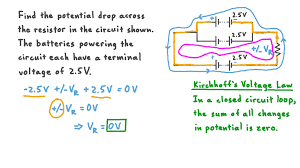 Find the potential drop across
the resistor in the circuit shown.
The batteries powering the
circuit each have a terminal
voltage of 2.5V.
-2.5V +/-V_R + 2.5V = 0V
+/-V_R = 0V
⇒ V_R = 0V
2.5V
2.5V
+/-V_R
2.5V
Kirchhoff's Voltage Law
In a closed circuit loop,
the sum of all changes
in potential is zero.